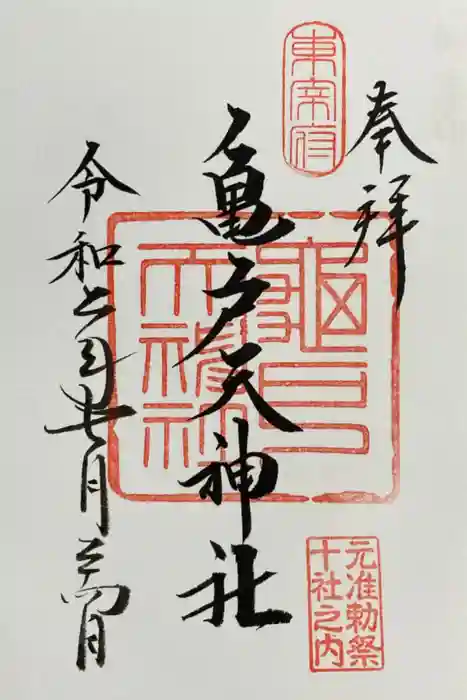 奉拝
東宰府
亀戸天神社
令和二年七月日
元准勅祭
十社之内